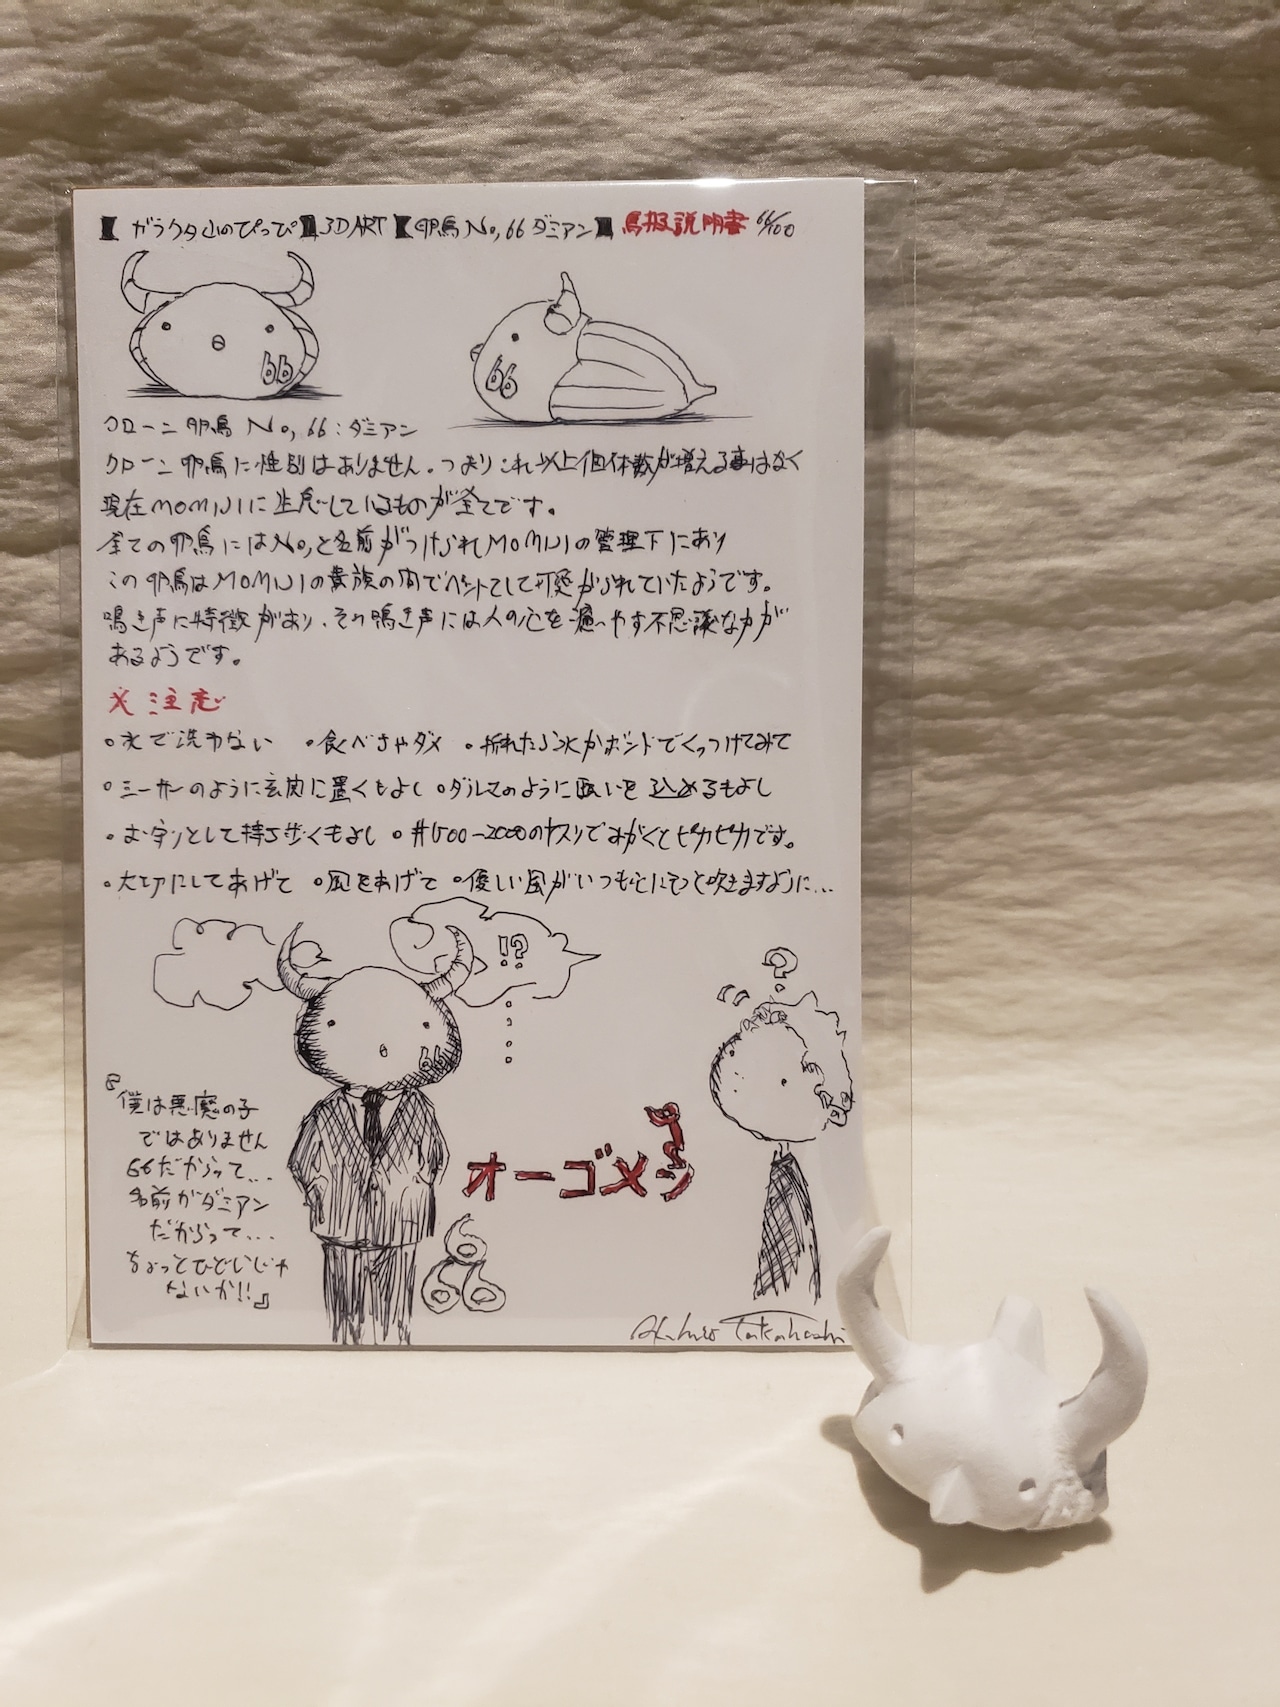 【ガラクタ山のぴっぴ】3D ART【卵鳥 No,66 ダミアン】鳥扱説明書 66/100
66
66
クローン卵鳥 No, 66 : ダミアン
クローン卵鳥に性別はありません。つまりこれ以上個体数が増える事はなく
現在MOMIJIに生息しているものが全てです。
全ての卵鳥にはNo,と名前がつけられMOMIJIの管理下にあり
この卵鳥はMOMIJIの貴族の間でペットとして可愛がられていたようです。
鳴き声に特徴があり、その鳴き声には人の心を癒やす不思議な力が
あるようです。
※注意
・水で洗わない ・食べちゃダメ ・折れたら木かボンドでくっつけてみて
・シーサーのように玄関に置くもよし ・ダルマのように願いを込めるもよし
・お守りとして持ち歩くもよし ・#1500-2000のヤスリでみがくとピカピカです。
・大切にしてあげて ・風をあげて ・優しい風がいつも心にそっと吹きますように...
!?
?
66
『僕は悪魔の子
ではありません
66だからって...
名前がダミアン
だからって...
ちょっとひどいじゃ
ないか!!』
オーゴメン
666
Akihiro Takahashi